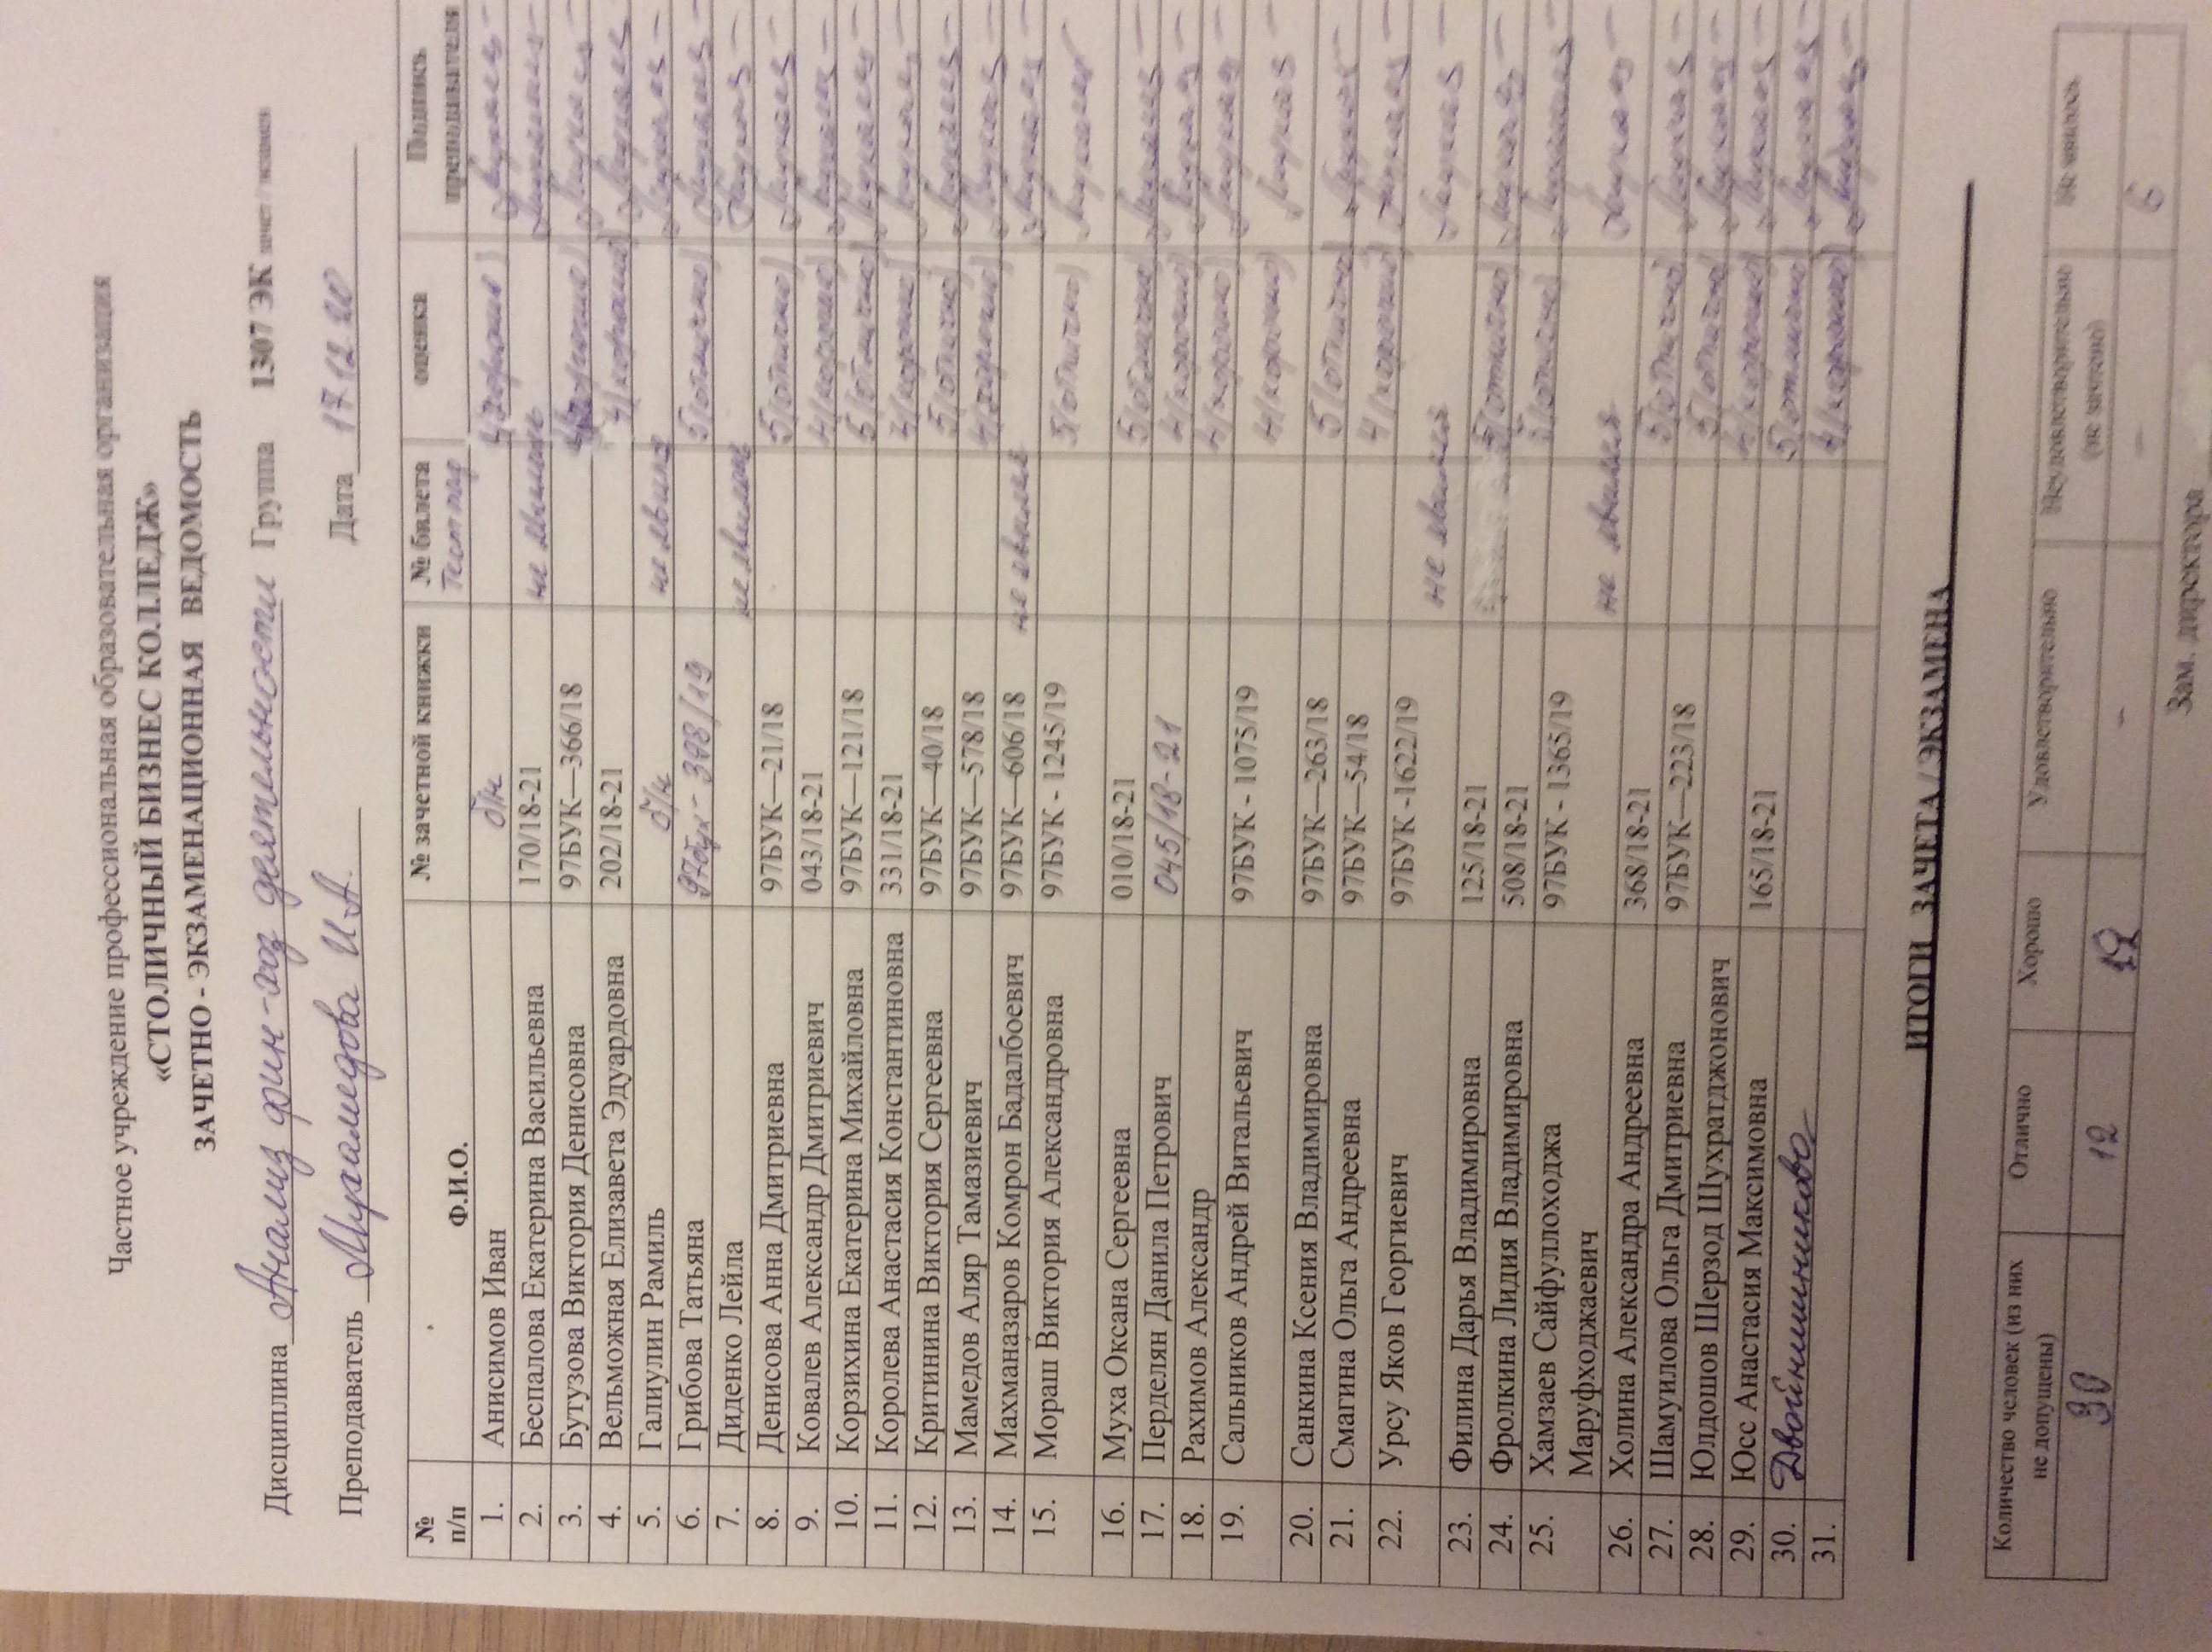 Частное учреждение профессиональная образовательная организация
«СТОЛИЧНЫЙ БИЗНЕС КОЛЛЕДЖ»
ЗАЧЕТНО - ЭКЗАМЕНАЦИОННАЯ ВЕДОМОСТЬ
Дисциплина Анализ фин-хоз деятельности Группа 1307 ЭК зачет / экзамен
Преподаватель Мухамедова И.А. Дата 17.12.20
№ п/п Ф.И.О. № зачетной книжки № билета оценка Подпись преподавателя
1. Анисимов Иван б/н 4(хорошо)
2. Беспалова Екатерина Васильевна 170/18-21 не явилась
3. Бутузова Виктория Денисовна 97БУК—366/18 4(хорошо)
4. Вельможная Елизавета Эдуардовна 202/18-21 4(хорошо)
5. Галиулин Рамиль б/н не явился
6. Грибова Татьяна 97бух- 398/19 5(отлично)
7. Диденко Лейла не явилась
8. Денисова Анна Дмитриевна 97БУК—21/18 5(отлично)
9. Ковалев Александр Дмитриевич 043/18-21 4(хорошо)
10. Корзихина Екатерина Михайловна 97БУК—121/18 5(отлично)
11. Королева Анастасия Константиновна 331/18-21 4(хорошо)
12. Критинина Виктория Сергеевна 97БУК—40/18 5(отлично)
13. Мамедов Аляр Тамазиевич 97БУК—578/18 4(хорошо)
14. Махманазаров Комрон Бадалбоевич 97БУК—606/18 не явился
15. Мораш Виктория Александровна 97БУК - 1245/19 5(отлично)
16. Муха Оксана Сергеевна 010/18-21 5(отлично)
17. Перделян Данила Петрович 045/18-21 4(хорошо)
18. Рахимов Александр 4(хорошо)
19. Сальников Андрей Витальевич 97БУК - 1075/19 4(хорошо)
20. Санкина Ксения Владимировна 97БУК—263/18 5(отлично)
21. Смагина Ольга Андреевна 97БУК—54/18 4(хорошо)
22. Урсу Яков Георгиевич 97БУК -1622/19 не явился
23. Филина Дарья Владимировна 125/18-21 5(отлично)
24. Фролкина Лидия Владимировна 508/18-21 5(отлично)
25. Хамзаев Сайфуллоходжа 97БУК - 1365/19
Маруфходжаевич не явился
26. Холина Александра Андреевна 368/18-21 5(отлично)
27. Шамуилова Ольга Дмитриевна 97БУК—223/18 5(отлично)
28. Юлдошов Шерзод Шухратджонович 4(хорошо)
29. Юсс Анастасия Максимовна 165/18-21 5(отлично)
30. Двойнишникова 4(хорошо)
31.
ИТОГИ ЗАЧЕТА / ЭКЗАМЕНА
Количество человек (из них не допущены) Отлично Хорошо Удовлетворительно Неудовлетворительно (не зачтено) Не явилось
30 12 12 - - 6
Зам. директора